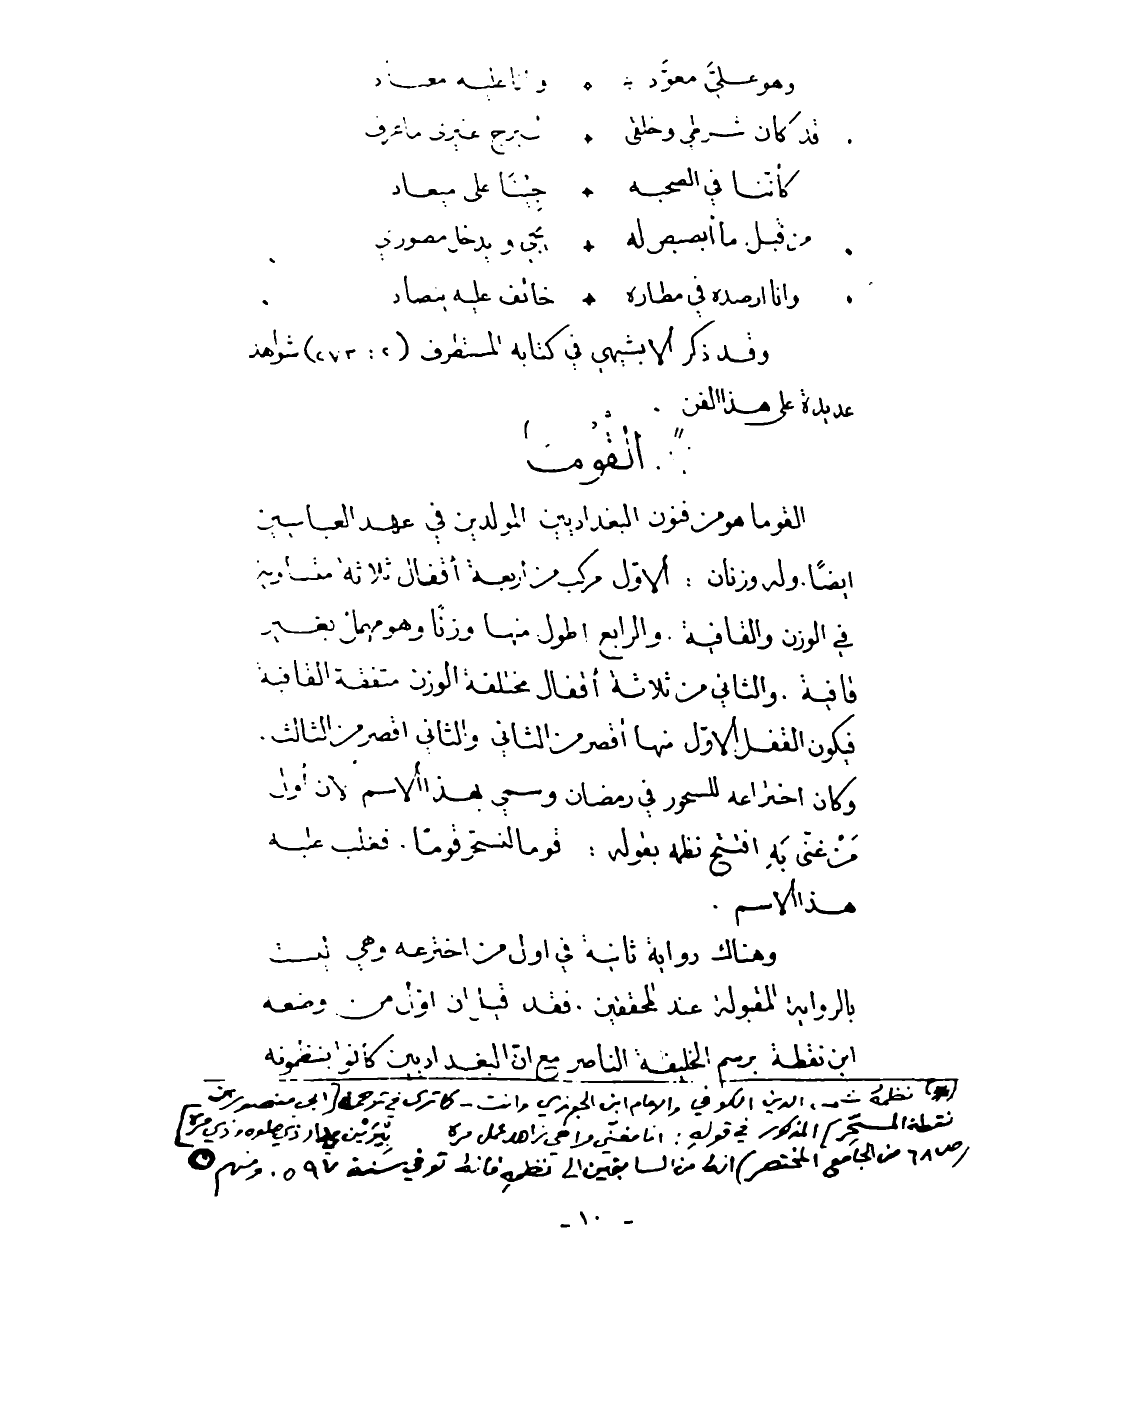 وهو عليَّ معوَّد * وانا عليه معتاد
قد كان شرطي وخلفى * يبرح غيرى ما عرف
كأننا في الصحبه * جِئْنَا على ميعاد
من قبل ما أبصبص له * يجي ويدخل مصورتي
وانا ارصده في مطاره * خائف عليه ينصاد
وقد ذكر الأبشيهي في كتابه المستطرف (٢ : ٢٧٣) شواهد
عديدة على هذا الفن .
القُومَا
القوما هو من فنون البغداديين المولدين في عهد العباسيين
ايضًا . وله وزنان : الأوّل مركب من اربعة أقفال ثلاثة متساوية
في الوزن والقافية . والرابع اطول منها وزنًا وهو مهمل بغير
قافية . والثاني من ثلاثة أقفال مختلفة الوزن متفقة القافية
فيكون القفل الأوّل منها أقصر من الثاني والثاني اقصر من الثالث .
وكان اختراعه للسحور في رمضان وسمي بهذا الأسم لان أول
مَنْ غنّى بَهِ افتتح نظمه بقوله : قوما لنسحّر قومًا . فغلب عليه
هذا الأسم .
وهناك رواية ثانية في اول من اخترعه وهي ليست
بالرواية المقبولة عند المحققين . فقد قيل ان اوّل من وضعه
ابن نقطة برسم الخليفة الناصر مع انّ البغداديين كانوا ينظمونه
(*) نظمهُ الدين الكوفي والامام ابن الجوزي وانت - كما ترى في ترجمة [ابي منصور بن
نقطة المسحّر] المذكور في قوله : انا مغنّي واخي زاهد عمل مرة بِئْرَيْن دار ذي حلوه وذي مرة]
(ص ٦٨ من الجامع المختصر) انه من السابقين الى نظمه فانه توفي سنة ٥٩٧ . ومنهم
- ١٠ -